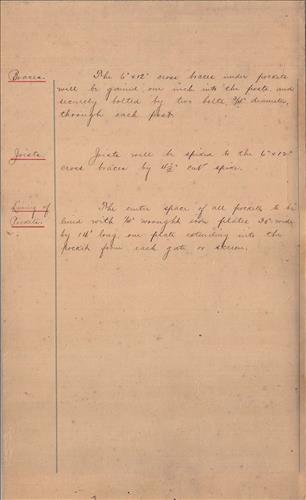 Braces. The 6"x12" cross braces under pockets
will be gained one inch into the posts, and
securely bolted by two bolts, diameter,
through each post.
Joists. Joists will be spiked to the 6"x12"
cross braces by 4½" cut spike.
Lining of The entire space of all pockets to be
Pockets. lined with wrought iron plates wide
by long, one plate extending into the
pocket from each gate or screen.